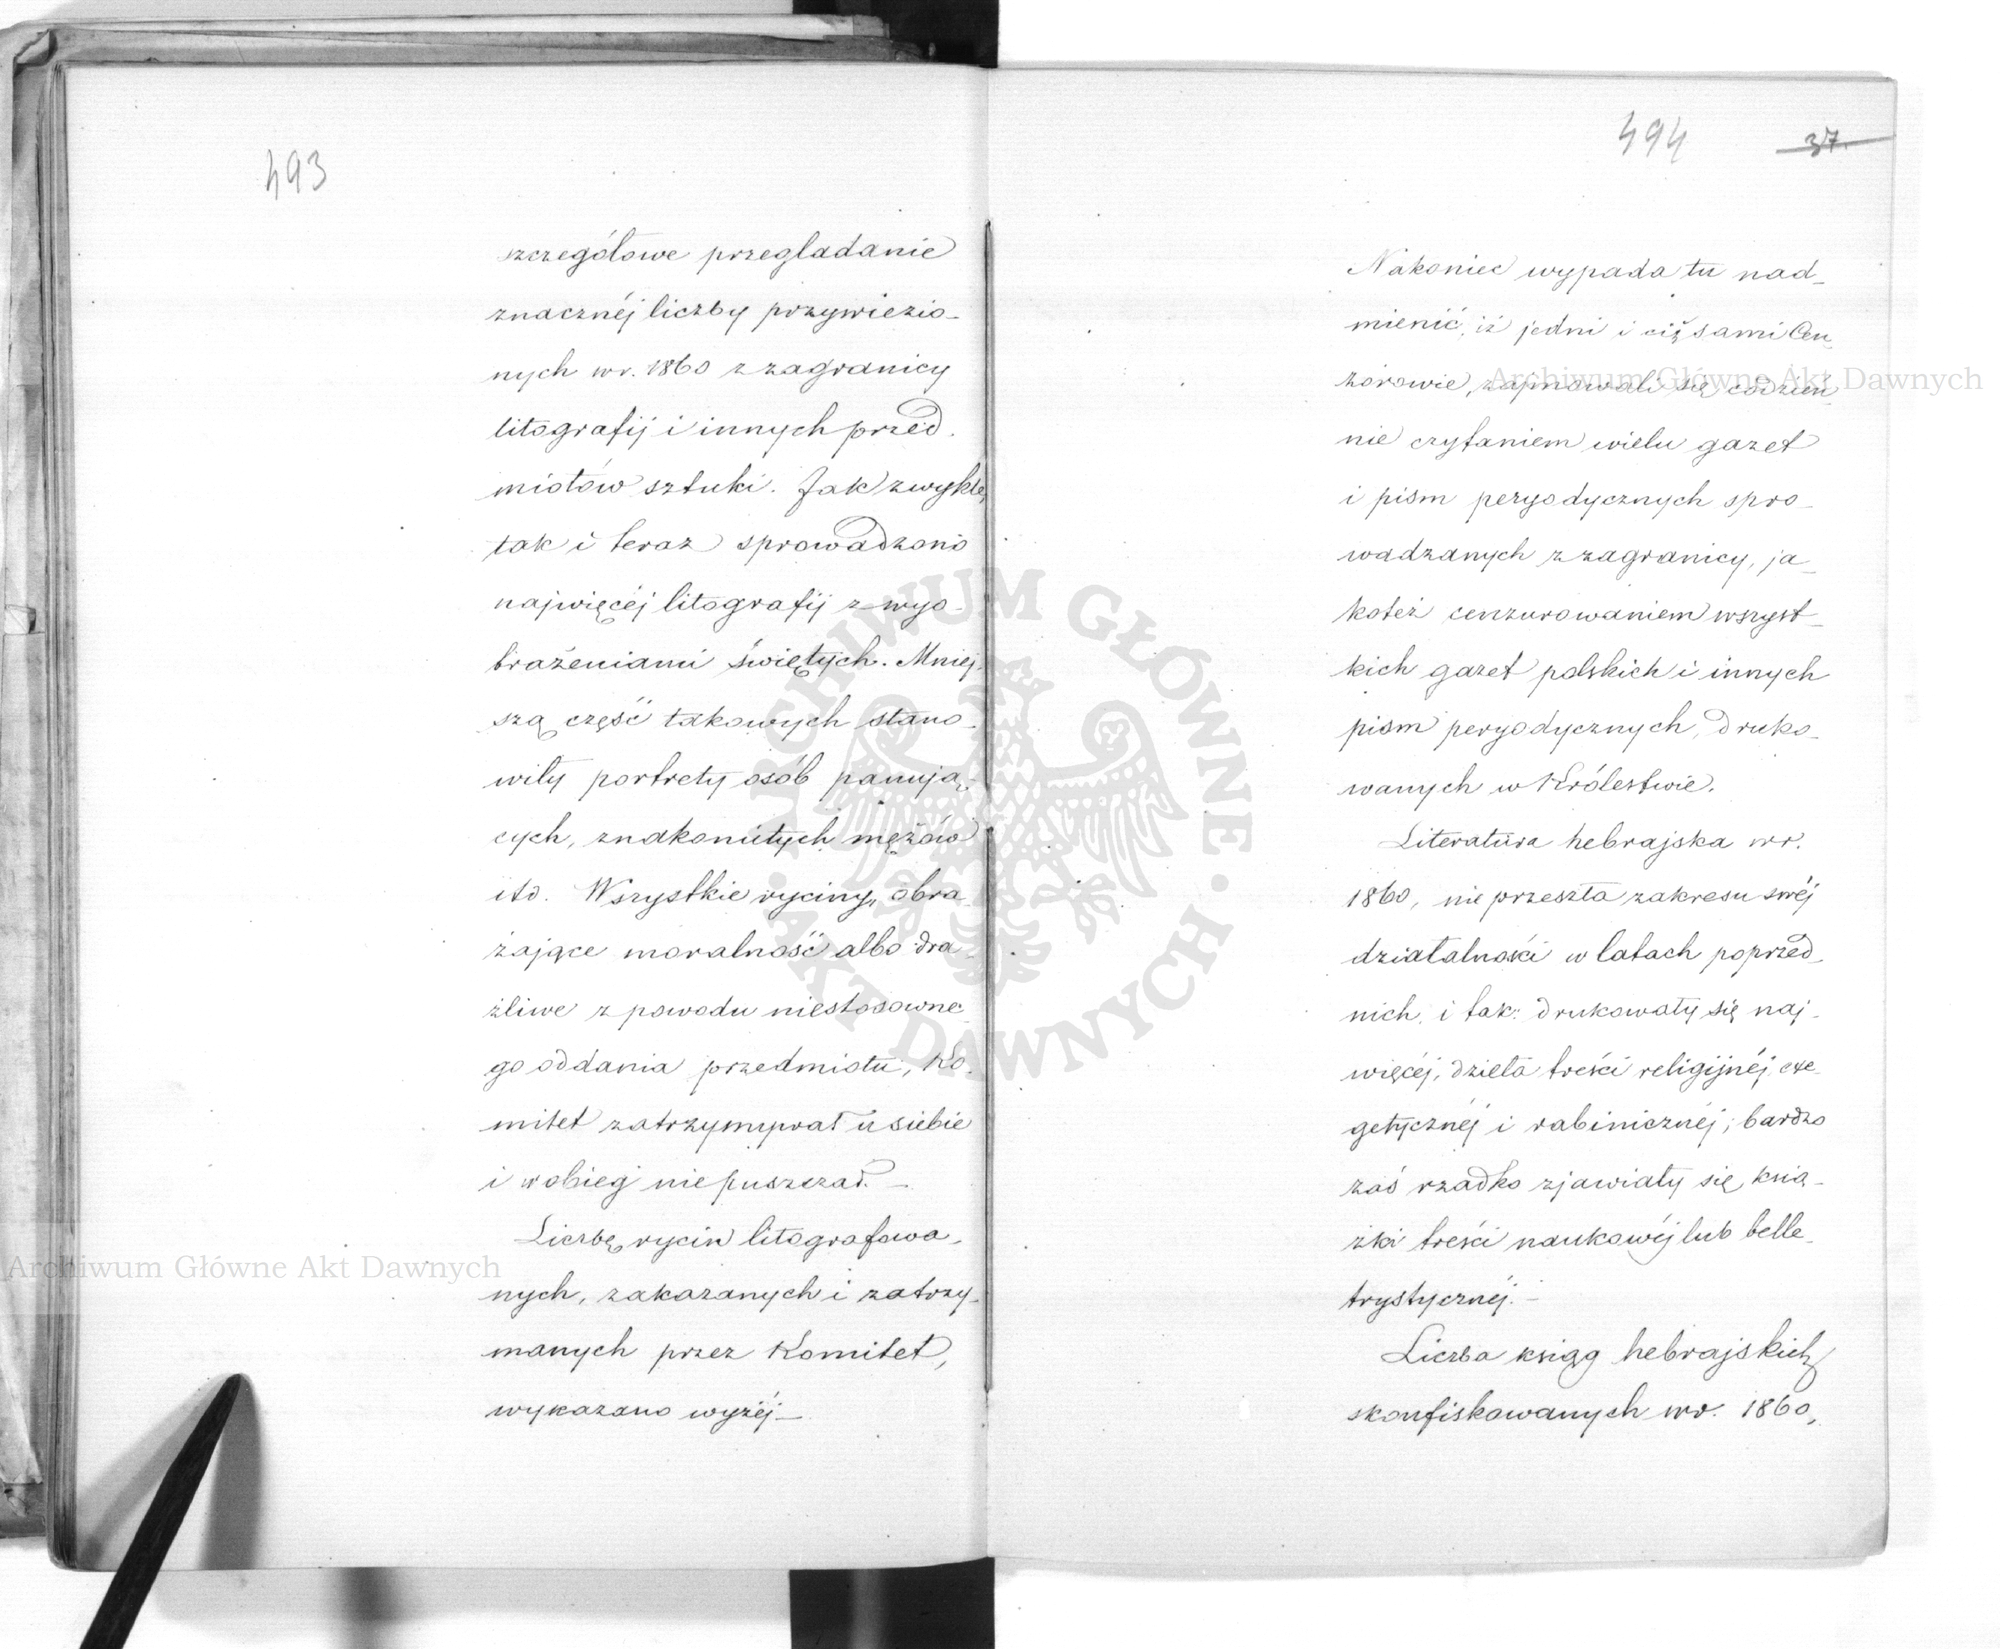 493
szczegółowe przegladanie
znacznéj liczby przywiezio-
nych w r. 1860 z zagranicy
litografij i innych przed-
miotów sztuki. Jak zwykle,
tak i teraz sprowadzono
najwięcéj litografij z wyo-
brażeniami świętych. Mniej-
szą część takowych stano-
wiły portrety osób panują-
cych, znakomitych mężów
itd. Wszystkie ryciny, obra-
żające moralność albo dra-
żliwe z powodu niestosowne-
go oddania przedmiotu, Ko-
mitet zatrzymywał u siebie
i w obieg nie puszczał. —
Liczbę rycin litografowa-
nych, zakazanych i zatrzy-
manych przez Komitet,
wykazano wyżéj —
494 37.
Nakoniec wypada tu nad-
mienić, iż jedni i ciż sami Cen-
zorowie, zajmowali się codzien-
nie czytaniem wielu gazet
i pism peryodycznych spro-
wadzanych z zagranicy, ja-
koteż cenzurowaniem wszyst-
kich gazet polskich i innych
pism peryodycznych, druko-
wanych w Królestwie.
Literatura hebrajska w r.
1860, nie przeszła zakresu swéj
działalności w latach poprzed-
nich, i tak: drukowały się naj-
więcéj, dzieła treści religijnéj, exe-
getycznéj i rabinicznéj; bardzo
zaś rzadko zjawiały się ksią-
żki treści naukowéj lub belle-
trystycznéj. —
Liczba ksiąg hebrajskich
skonfiskowanych w r. 1860,
Archiwum Główne Akt Dawnych
Archiwum Główne Akt Dawnych
ARCHIWUM GŁÓWNE · AKT DAWNYCH ·